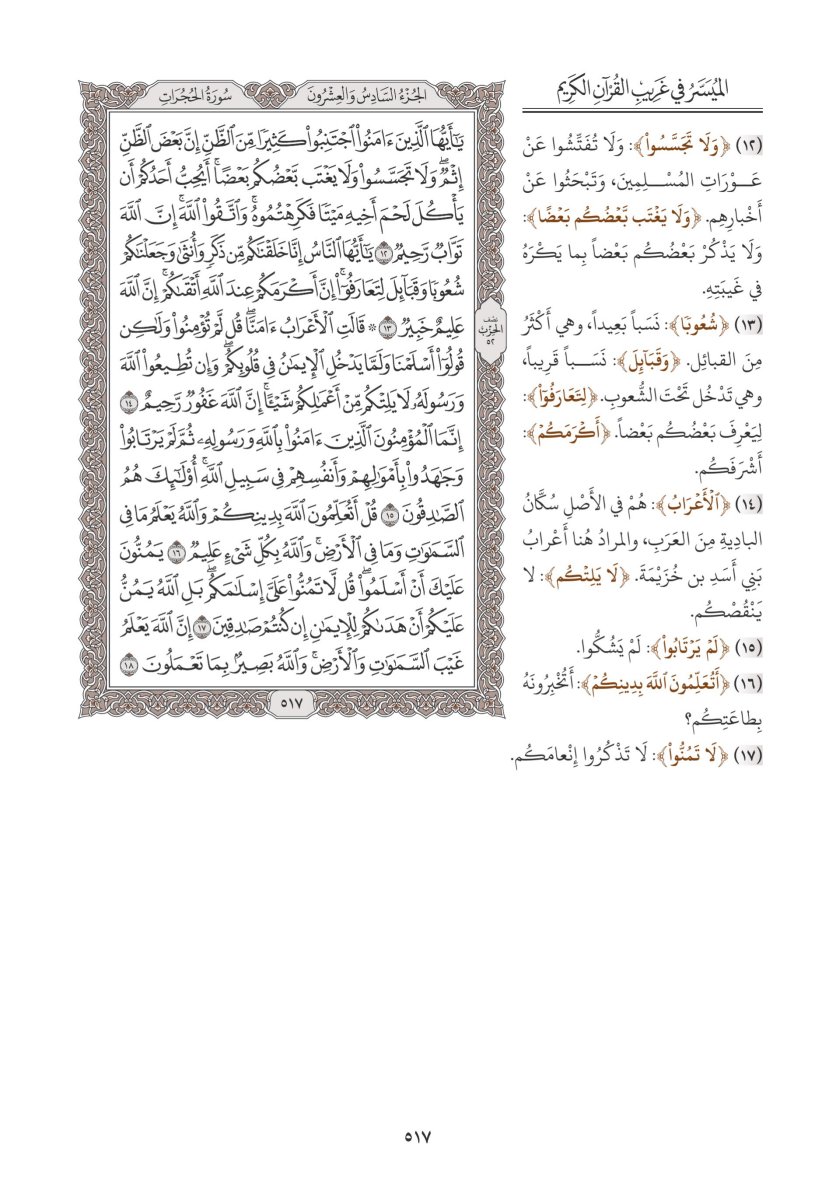 الميَسَّرُ في غَرِيبِ القُرْآنِ الكَرِيم
(١٢) ﴿وَلَا تَجَسَّسُوا۟﴾: وَلَا تُفَتِّشُوا عَنْ
عَـوْرَاتِ المُسْـلِمِينَ، وَتَبْحَثُوا عَنْ
أَخْبارِهِم. ﴿وَلَا يَغْتَب بَّعْضُكُم بَعْضًا﴾:
وَلَا يَذْكُرْ بَعْضُكُم بَعْضاً بِما يَكْرَهُ
في غَيبَتِهِ.
(١٣) ﴿شُعُوبًا﴾: نَسَباً بَعِيداً، وهي أَكْثَرُ
مِنَ القبائِلِ. ﴿وَقَبَآئِلَ﴾: نَسَـباً قَرِيباً،
وهي تَدْخُل تَحْتَ الشُّعوبِ. ﴿لِتَعَارَفُوٓا۟﴾:
لِيَعْرِفَ بَعْضُكُم بَعْضاً. ﴿أَكْرَمَكُمْ﴾:
أَشْرَفَكُم.
(١٤) ﴿ٱلْأَعْرَابُ﴾: هُمْ في الأَصْلِ سُكَّانُ
البادِيةِ مِنَ العَرَبِ، والمرادُ هُنا أَعْرابُ
بَنِي أَسَدِ بن خُزَيْمَةَ. ﴿لَا يَلِتْكُم﴾: لا
يَنْقُصْكُم.
(١٥) ﴿لَمْ يَرْتَابُوا۟﴾: لَمْ يَشُكُّوا.
(١٦) ﴿أَتُعَلِّمُونَ ٱللَّهَ بِدِينِكُمْ﴾: أَتُخْبِرُونَهُ
بِطاعَتِكُم؟
(١٧) ﴿لَا تَمُنُّوا۟﴾: لَا تَذْكُرُوا إِنْعامَكُم.
الجُزْءُ السَّادِسُ وَالعِشْرُونَ
سُورَةُ الحُجُرَاتِ
يَٰٓأَيُّهَا ٱلَّذِينَ ءَامَنُوا۟ ٱجْتَنِبُوا۟ كَثِيرًا مِّنَ ٱلظَّنِّ إِنَّ بَعْضَ ٱلظَّنِّ
إِثْمٌ ۖ وَلَا تَجَسَّسُوا۟ وَلَا يَغْتَب بَّعْضُكُم بَعْضًا ۚ أَيُحِبُّ أَحَدُكُمْ أَن
يَأْكُلَ لَحْمَ أَخِيهِ مَيْتًا فَكَرِهْتُمُوهُ ۚ وَٱتَّقُوا۟ ٱللَّهَ ۚ إِنَّ ٱللَّهَ
تَوَّابٌ رَّحِيمٌ ١٢ يَٰٓأَيُّهَا ٱلنَّاسُ إِنَّا خَلَقْنَٰكُم مِّن ذَكَرٍ وَأُنثَىٰ وَجَعَلْنَٰكُمْ
شُعُوبًا وَقَبَآئِلَ لِتَعَارَفُوٓا۟ ۚ إِنَّ أَكْرَمَكُمْ عِندَ ٱللَّهِ أَتْقَىٰكُمْ ۚ إِنَّ ٱللَّهَ
عَلِيمٌ خَبِيرٌ ١٣ ۞ قَالَتِ ٱلْأَعْرَابُ ءَامَنَّا ۖ قُل لَّمْ تُؤْمِنُوا۟ وَلَٰكِن
قُولُوٓا۟ أَسْلَمْنَا وَلَمَّا يَدْخُلِ ٱلْإِيمَٰنُ فِى قُلُوبِكُمْ ۖ وَإِن تُطِيعُوا۟ ٱللَّهَ
وَرَسُولَهُۥ لَا يَلِتْكُم مِّنْ أَعْمَٰلِكُمْ شَيْـًٔا ۚ إِنَّ ٱللَّهَ غَفُورٌ رَّحِيمٌ ١٤
إِنَّمَا ٱلْمُؤْمِنُونَ ٱلَّذِينَ ءَامَنُوا۟ بِٱللَّهِ وَرَسُولِهِۦ ثُمَّ لَمْ يَرْتَابُوا۟
وَجَٰهَدُوا۟ بِأَمْوَٰلِهِمْ وَأَنفُسِهِمْ فِى سَبِيلِ ٱللَّهِ ۚ أُو۟لَٰٓئِكَ هُمُ
ٱلصَّٰدِقُونَ ١٥ قُلْ أَتُعَلِّمُونَ ٱللَّهَ بِدِينِكُمْ وَٱللَّهُ يَعْلَمُ مَا فِى
ٱلسَّمَٰوَٰتِ وَمَا فِى ٱلْأَرْضِ ۚ وَٱللَّهُ بِكُلِّ شَىْءٍ عَلِيمٌ ١٦ يَمُنُّونَ
عَلَيْكَ أَنْ أَسْلَمُوا۟ ۖ قُل لَّا تَمُنُّوا۟ عَلَىَّ إِسْلَٰمَكُم ۖ بَلِ ٱللَّهُ يَمُنُّ
عَلَيْكُمْ أَنْ هَدَىٰكُمْ لِلْإِيمَٰنِ إِن كُنتُمْ صَٰدِقِينَ ١٧ إِنَّ ٱللَّهَ يَعْلَمُ
غَيْبَ ٱلسَّمَٰوَٰتِ وَٱلْأَرْضِ ۚ وَٱللَّهُ بَصِيرٌۢ بِمَا تَعْمَلُونَ ١٨
نصف
الحزب
٥٢
٥١٧
٥١٧